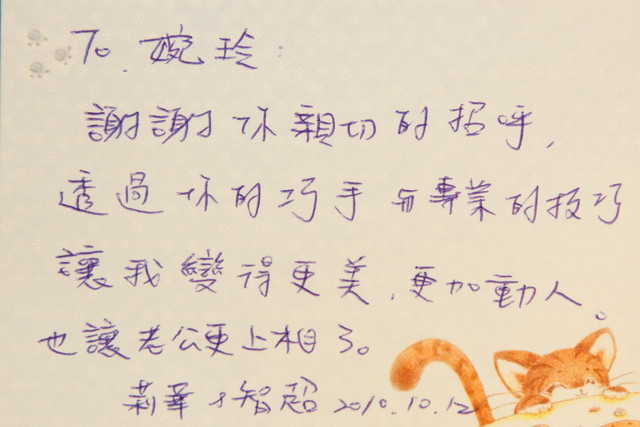 To 婉玲:
謝謝你親切的招呼,
透過你的巧手與專業的技巧
讓我變得更美,更加動人。
也讓老公更上相了。
莉華&智超 2010.10.12